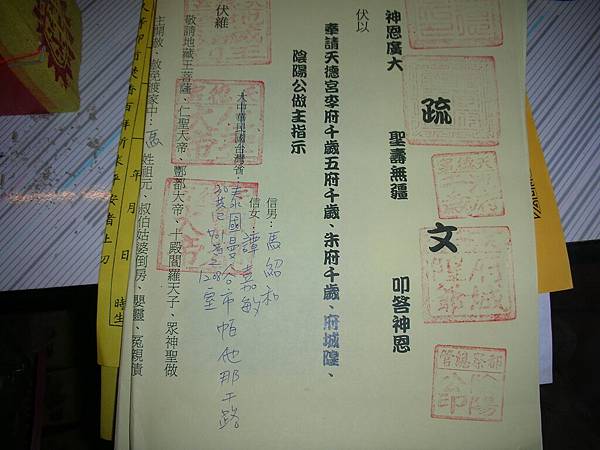 疏文
神恩廣大 聖壽無疆 叩答神恩
伏以
奉請天德宮李府千歲五府千歲、朱府千歲、府城隍、
陰陽公做主指示
信男：馬紹和
信女：譚嘉敏
大中華民國台灣省：泰國曼谷市帕他那干路
室
伏維
敬請地藏王菩薩、仁聖大帝、酆都大帝、十殿閻羅天子、眾神聖做
主開赦、赦免渡家中：馬 姓祖元、叔伯姑婆倒房、嬰靈、冤親債
年 月 日 時生
陰陽公印